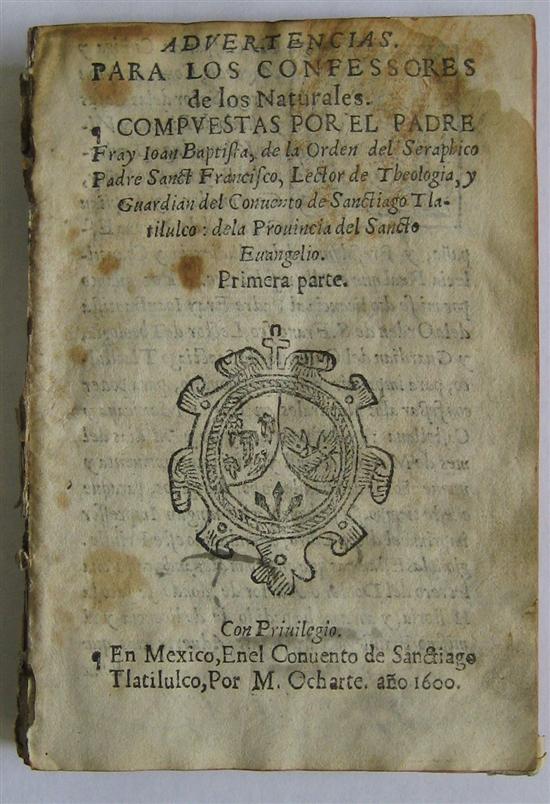 ADVERTENCIAS.
PARA LOS CONFESSORES
de los Naturales.
¶ COMPVESTAS POR EL PADRE
Fray Ioan Baptiſta, de la Orden del Seraphico
Padre Sanct Franciſco, Lector de Theologia, y
Guardian del Conuento de Sanctiago Tla-
tilulco: dela Prouincia del Sancto
Euangelio.
Primera parte.
Con Priuilegio.
¶ En Mexico, Enel Conuento de Sanctiago
Tlatilulco, Por M. Ocharte. año 1600.